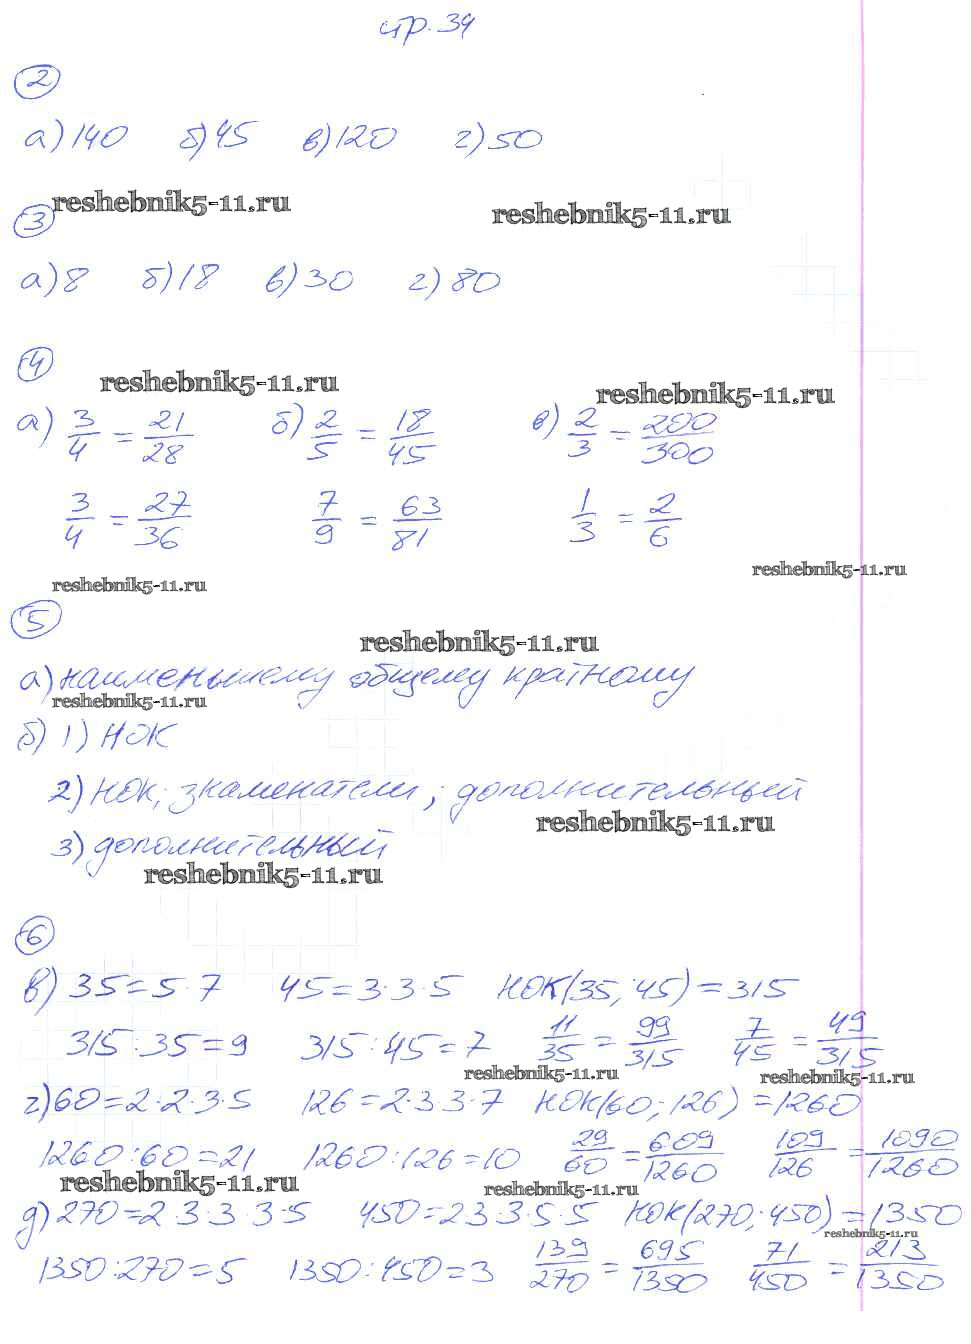 стр. 34
2
а) 140 б) 45 в) 120 г) 50
reshebnik5-11.ru
reshebnik5-11.ru
3
а) 8 б) 18 в) 30 г) 80
4
reshebnik5-11.ru
reshebnik5-11.ru
а) 3/4 = 21/28 б) 2/5 = 18/45 в) 2/3 = 200/300
3/4 = 27/36 7/9 = 63/81 1/3 = 2/6
reshebnik5-11.ru
reshebnik5-11.ru
5
reshebnik5-11.ru
а) наименьшему общему кратному
reshebnik5-11.ru
б) 1) НОК
2) НОК; знаменатели; дополнительный
reshebnik5-11.ru
3) дополнительный
reshebnik5-11.ru
6
в) 35 = 5·7 45 = 3·3·5 НОК(35; 45) = 315
315:35 = 9 315:45 = 7 11/35 = 99/315 7/45 = 49/315
reshebnik5-11.ru
reshebnik5-11.ru
г) 60 = 2·2·3·5 126 = 2·3 3·7 НОК(60; 126) = 1260
1260:60 = 21 1260:126 = 10 29/60 = 609/1260 109/126 = 1090/1260
reshebnik5-11.ru
reshebnik5-11.ru
д) 270 = 2 3·3·3·5 450 = 2 3 3·5·5 НОК(270; 450) = 1350
reshebnik5-11.ru
1350:270 = 5 1350:450 = 3 139/270 = 695/1350 71/450 = 213/1350